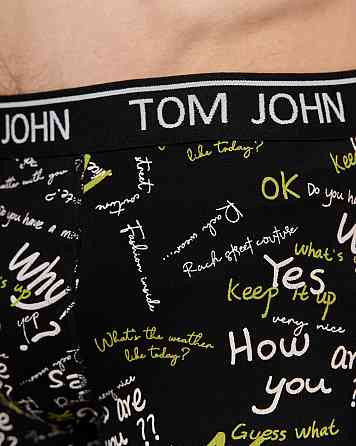 JOHN
TOM JOHN
street
couture
weather
like today?
Kee
OK
Do you have
Do you have a m
Rach wear...
Rach street couture
Fashion inside
Why
what's
Yes
Keep it up
very nice
What's the weather
like today?
How
you?
are
you
??
Guess what